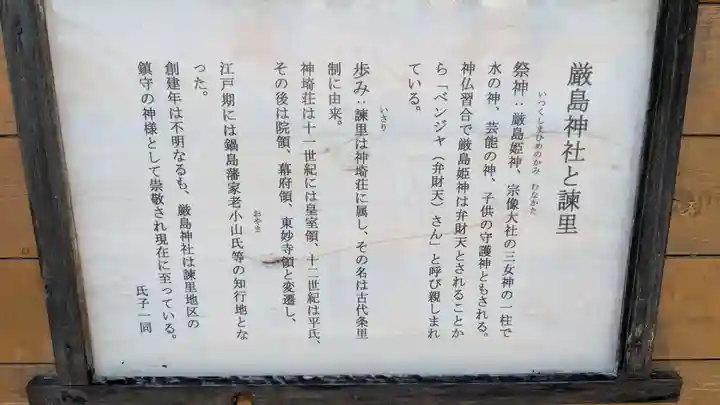 厳島神社と諫里
いつくしまひめのかみ むなかた
祭神：厳島姫神、宗像大社の三女神の一柱で
水の神、芸能の神、子供の守護神ともされる。
神仏習合で厳島姫神は弁財天とされることか
ら「ベンジャ（弁財天）さん」と呼び親しまれ
ている。
いさり
歩み：諫里は神埼荘に属し、その名は古代条里
制に由来。
神埼荘は十一世紀には皇室領、十二世紀は平氏、
その後は院領、幕府領、東妙寺領と変遷し、
おやま
江戸期には鍋島藩家老小山氏等の知行地とな
った。
創建年は不明なるも、厳島神社は諫里地区の
鎮守の神様として崇敬され現在に至っている。
氏子一同